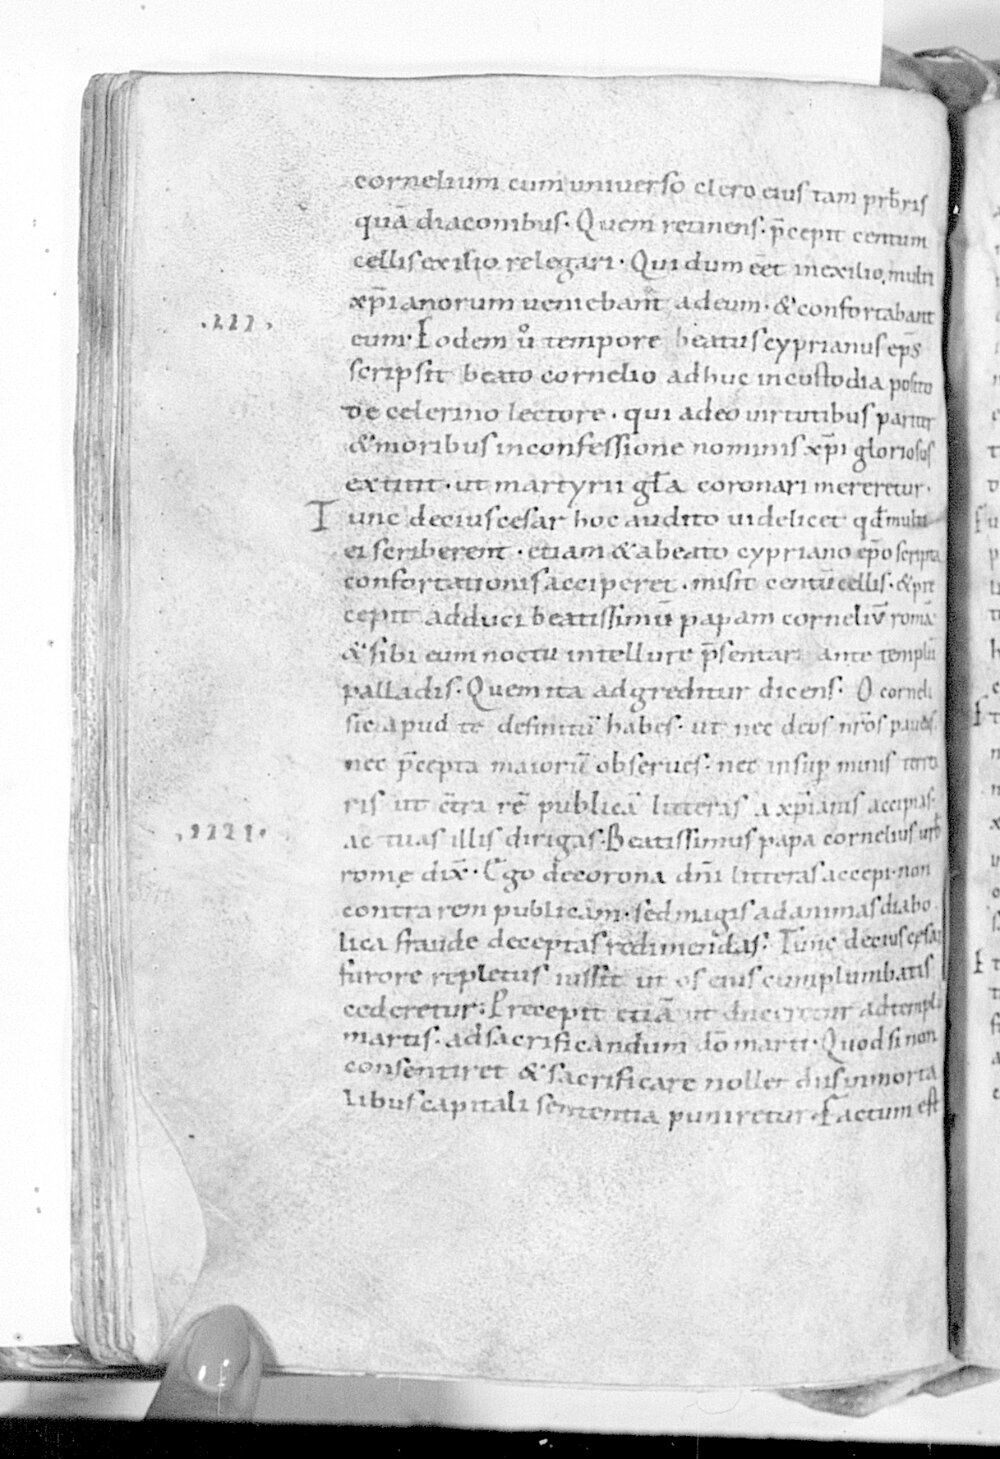 cornelium cum uniuerso clero eius tam prƀris
quā diaconibus· Quem retinens· p̄cepit centum
cellis exilio relegari· Qui dum eēt in exilio, multi
xp̄ianorum ueniebant ad eum· & confortabant
.III. eum· Eodem ů tempore beatus cyprianus ep̄s
scripsit beato cornelio adhuc in custodia posito
de celerino lectore· qui adeo uirtutibus pariter
& moribus in confessione nominis xp̄i gloriosus
extitit· ut martyrii gl̄a coronari mereretur·
Tunc decius cesar hoc audito uidelicet qđ multi
ei scriberent· etiam & a beato cypriano ep̄o scripta
confortationis acciperet· misit centū cellis· &
cepit adduci beatissimū papam corneliū romā
& sibi eum noctu in tellure p̄sentari ante templū
palladis· Quem ita adgreditur dicens· O corneli
sic apud te definitū habes· ut nec deos nr̄os paueas·
nec p̄cepta maiorū obserues· nec insup minis terre
ris ut c̄tra rē publicā litteras a xp̄ianis accipias·
.IIII. ac tuas illis dirigas· Beatissimus papa cornelius urb̄
rome dix̄· Ego de corona dn̄i litteras accepi· non
contra rem publicam· sed magis ad animas diabo
lica fraude deceptas redimendas· Tunc decius cesar
furore repletus iussit ut os eius cum plumbatis
cederetur· Precepit etiā ut duceretur ad templū
martis· ad sacrificandum dō marti· Quod si non
consentiret & sacrificare nollet diis inmorta
libus capitali sententia puniretur· Factum est